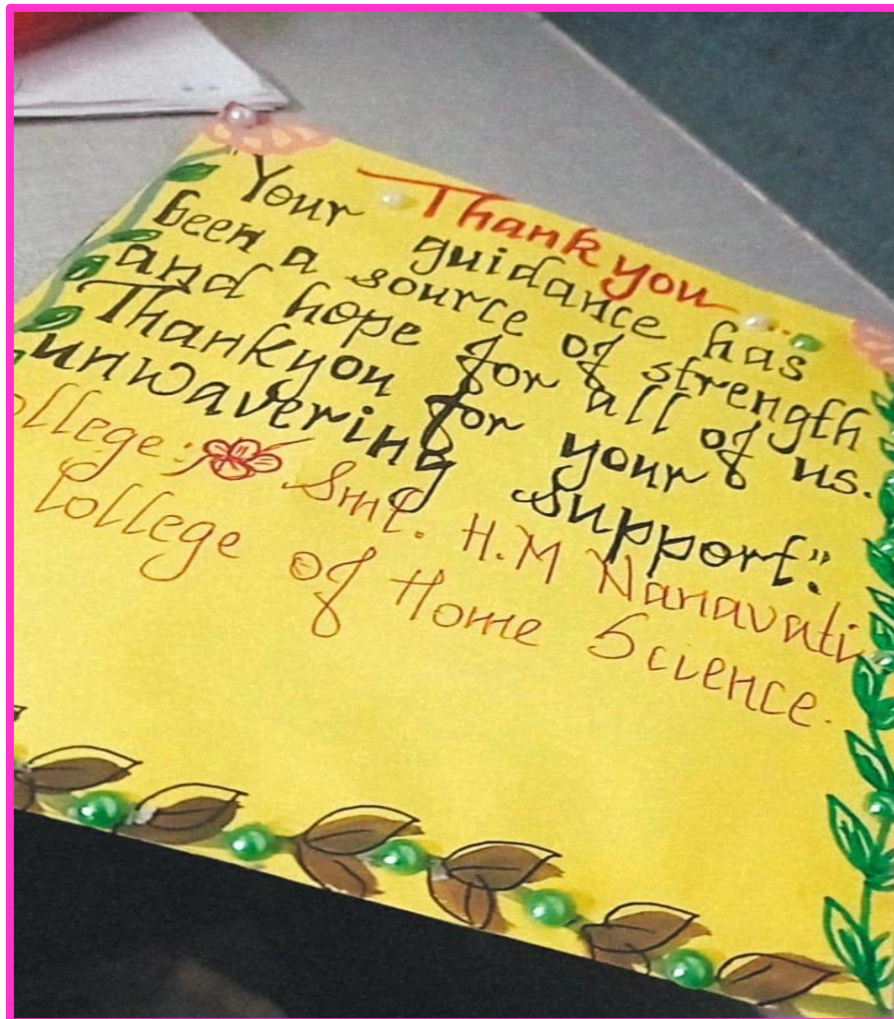 Thank you...
"Your guidance has
been a source of strength
and hope for all of us.
Thankyou for your
unwavering support".
ollege: Smt. H.M Nanavati
College of Home Science.